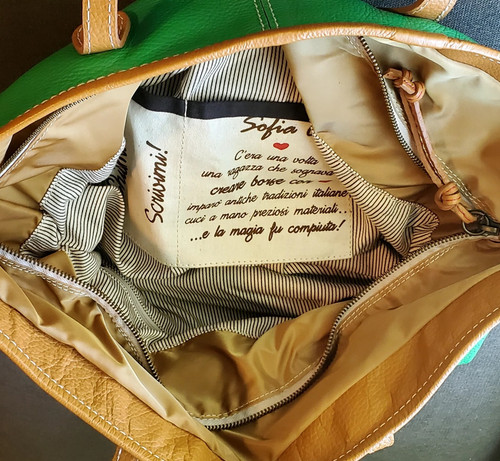 Scrivimi!
Sofia
C'era una volta
una ragazza che sognava
creare borse con
imparò antiche tradizioni italiane
cucì a mano preziosi materiali...
...e la magia fu compiuta!